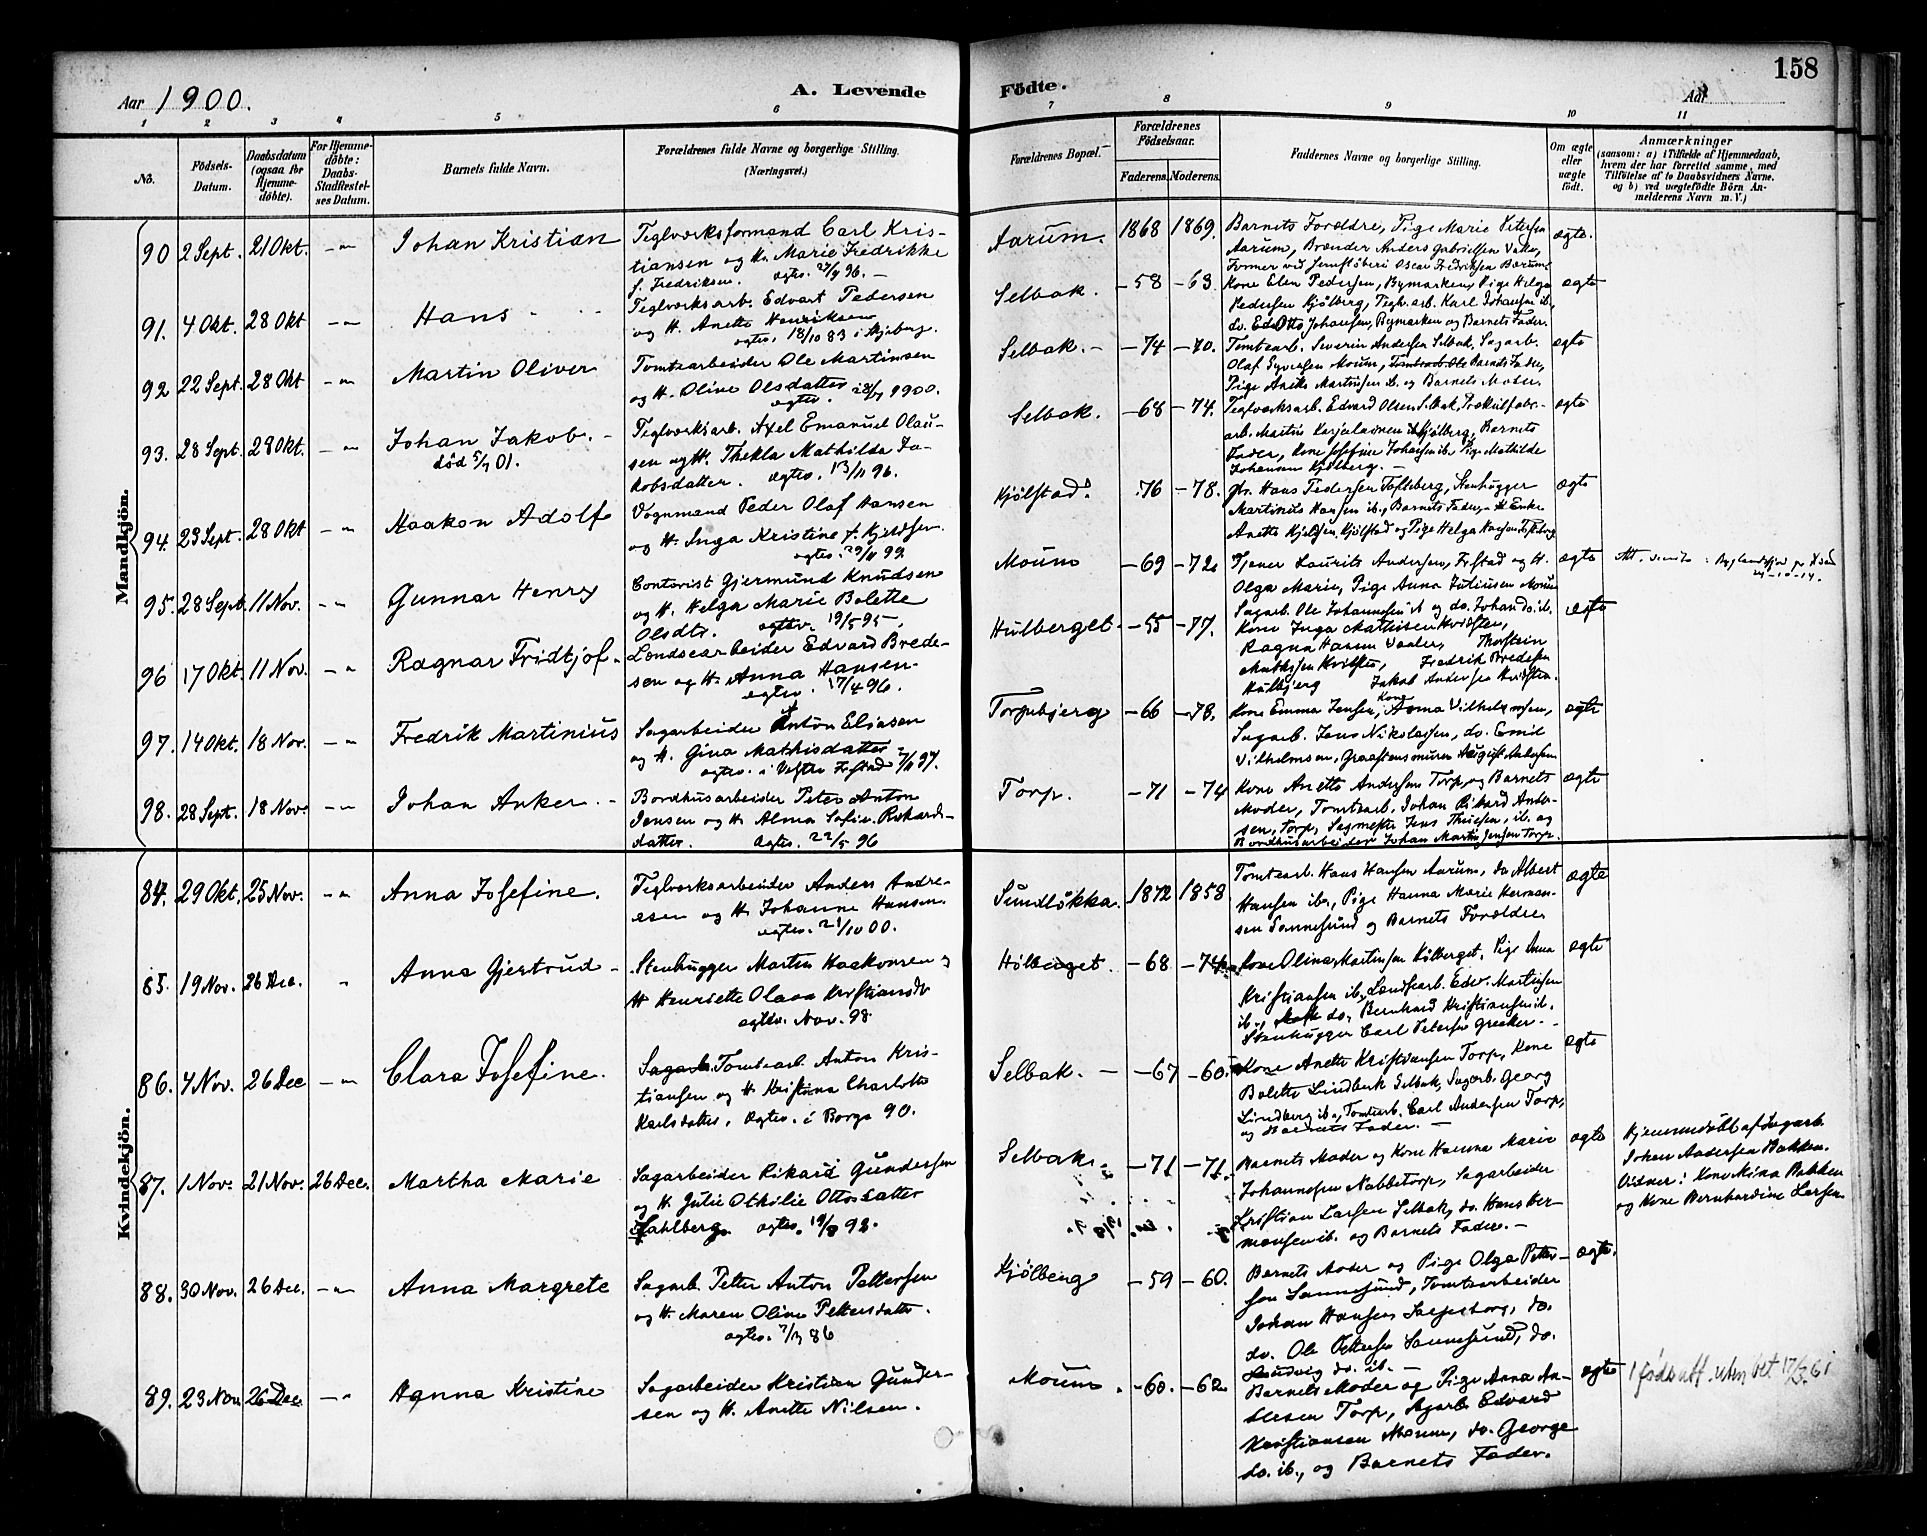 158
Aar 1900.
A. Levende
Fødte.
Aar
1 2 3 4 5 6 7 8 9 10 11
No.
Fødsels-
Datum.
Daabsdatum
(ogsaa for
Hjemme-
døbte).
For Hjemme-
døbte:
Daabs-
Stadfæstel-
ses Datum.
Barnets fulde Navn.
Forældrenes fulde Navne og borgerlige Stilling.
(Næringsvei.)
Forældrenes Bopæl.
Forældrenes
Fødselsaar.
Faderens. Moderens.
Faddernes Navne og borgerlige Stilling.
Om ægte
eller
uægte
født.
Anmærkninger
(saasom: a) i Tilfælde af Hjemmedaab,
hvem der har forrettet samme, med
Tilføielse af to Daabsvidners Navne,
og b) ved uægtefødte Børn An-
melderens Navn m. V.)
Mandkjön.
90 2 Sept. 21 Okt. -"- Johan Kristian
Teglværksformand Carl Kris-
tiansen og H. Marie Fredrikke
f. Fredriksen. ægtev. 27/9 96. -
Aarum. 1868 1869.
Barnets Forældre, Pige Marie Petersen
Aarum, Brænder Anders Gabrielsen
Former ved Oscar Fredriksen
ægte.
91. 4 Okt. 28 Okt -"- Hans
Teglværksarb. Edvart Pedersen
og H. Anette Henriksen
ægtev. 18/10 83 i Skjeberg.
Selbak. -58 -63
Kone Elen Pedersen, Bymarken, Pige Helga
Pedersen Kjølberg, Teglv.arb. Karl Johansen ib.,
do. Johansen, Bymarken og Barnets Fader.
ægte
92 22 Sept. 28 Okt -"- Martin Oliver
Tomtearbeider Ole Martinsen
og H. Olive Olsdatter
ægtev. 1900.
Selbak. -74 -70.
Tomtearb. Severin Andersen Selbak, Sagarb.
Olaf Syversen Moum, Barnets Fader,
Pige Anette Martinsen ib. og Barnets Moder.
ægte
93. 28 Sept. 28 Okt. -"- Johan Jakob.
død 5/7 01.
Teglværksarb. Axel Emanuel Olau-
sen og H. Thekla Mathilde Ja-
kobsdatter. ægtev. 13/11 96.
Selbak. -68 -74.
Teglværksarb. Edvard Olsen Selbak,
arb. Martin Kjølberg, Barnets
Fader, Kone Josefine Johansen ib. Pige Mathilde
Johansen Kjølberg. -
ægte
94. 23 Sept. 28 Okt -"- Haakon Adolf
Vognmand Peder Olaf Hansen
og H. Inga Kristine f. Kjeldsen.
ægtev. 29/11 99.
Kjølstad. 76 -78.
Hans Pedersen Tofteberg, Stenhugger
Martinius Hansen ib., Barnets Fader, Enke
Anette Kjeldsen, Kjølstad og Pige Helga Hansen
ægte
95. 28 Sept. 11 Nov. -"- Gunnar Henry
Contorist Gjermund Knudsen
og H. Helga Marie Bolette
Olsdtr. ægtev. 19/5 95.
Moum -69 -72.
Tjener Laurits Andersen, og H.
Olga Marie, Pige Anna Juliusen Moum
Sagarb. Ole Johannesen ib og do. Johan do. ib.
ægte
Att.
24-10-14.
96 17 Okt. 11 Nov. -"- Ragnar Fridtjof.
Landsearbeider Edvard Brede-
sen og H. Anna Hansen.
ægtev. 17/4 96.
Hulberget -55 -77.
Kone Inga Mathisen
Ragna Hansen Thorstein
Mathisen Fredrik Bredesen
Hulbjerg Jakob Andersen
ægte
97. 14 Okt. 18 Nov. -"- Fredrik Martinius
Sagarbeider Anton Eliasen
og H. Gina Mathisdatter
ægtev. i 97.
Torpebjerg -66 -78.
Kone Emma Jensen, Kone Anna Vilhelmsen,
Sagarb. Jens Nikolaisen, do. Emil
Vilhelmsen, Graastensmurer August
ægte
98. 28 Sept. 18 Nov. -"- Johan Anker
Bordhusarbeider Peter Anton
Jensen og H. Alma Sofie Rikards-
datter. Ægtev. 22/5 96
Torp. -71 -74
Kone Anette Andersen Torp, og Barnets
Moder, Tomtearb. Johan Rikard Ander-
sen, Torp, Sagmester Jens Thiesen, ib. og
Bordhusarbeider Johan Martin Jensen Torp.
ægte
Kvindekjön.
84. 29 Okt. 25 Nov. -"- Anna Josefine.
Teglværksarbeider Anders Andre-
esen og H. Johanne Hansen.
ægtev. 21/10 00.
Sundløkka. 1872 1858
Tomtearb. Hans Hansen Aarum, do Albert
Hansen ib., Pige Hanna Marie Herman-
sen Sannesund og Barnets Forældre.
ægte
85. 19 Nov. 26 Dec. " Anna Gjertrud
Stenhugger Martin Haakonsen og
H Henriette Olava Kristiansdtr
ægtev. Nov. 98
Hølberget. -68 -74
Kone Olina Martinsen Hølberget, Pige Anna
Kristiansen ib., Landsearb. Edv. Martinsen
ib., do. Bernhard Kristiansen ib.
Stenhugger Carl Petersen Greaker. -
ægte
86. 4 Nov. 26 Dec -"- Clara Josefine.
Tomtearb. Anton Kris-
tiansen og H. Kristina Charlotte
Karlsdatter. Ægtev. i Borge 90.
Selbak. -67 -60.
Kone Anette Kristiansen Torp, Kone
Bolette Lindberk Selbak, Sagarb. Georg
Lindberg ib., Tomtearb. Carl Andersen Torp,
og Barnets Fader. -
ægte
87. 1 Nov. 21 Nov. 26 Dec. Martha Marie
Sagarbeider Rikard Gundersen
og H. Julie Othilie Ottosdatter
Dahlberg. ægtev. 98.
Selbak. -71 -71.
Barnets Moder og Kone Hanna Marie
Johannesen Nabbetorp, Sagarbeider
Kristian Larsen Selbak, do. Hans Her-
mansen ib. og Barnets Fader. -
ægte
Hjemmedøbt af Sagarb.
Johan Andersen Bakken.
Vidner: Kone Mina Bakken
og Kone Bernhardine Larsen.
88. 30 Nov. 26 Dec. -"- Anna Margrete
Sagarb. Petter Anton Pettersen
og H. Maren Oline Pettersdatter.
ægtev. 86
Kjølberg -59 -60.
Barnets Moder og Pige Olga Petter-
sen Sannesund, Tomtearbeider
Johan Hansen Sarpsborg, do.
do. Ole Pettersen Sannesund, do.
Ludvig do. ib. -
ægte.
89. 23 Nov 26 Dec. -"- Hanna Kristine
Sagarbeider Kristian Gunder-
sen og H. Anette Nilsen.
Moum. -60. -62.
Barnets Moder og Pige Anna An-
dersen Torp, Sagarb. Edvard
Kristiansen Moum, do. George
do. ib., og Barnets Fader.
ægte
1 fødsatt. uten bet 17/3.61